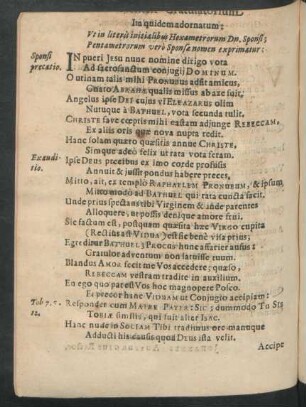 Ita quidem adornatum:
Ut in literis initialibus Hexametrorum Dn. Sponsi;
Pentametrorum verò Sponsæ nomen exprimatur:
Sponsi precatio.
IN pueri JESU nunc nomine dirigo vota
Ad sacrosanctum conjugij DOMINUM.
O utinam talis mihi PRONUBUS adsit amicus,
Guato ABRAHÆ qualis missus abaxe fuit,
Angelus ipse DEI cujus vi ELEAZARUS olim
Nutuque à BATHUEL, vota secunda tulit.
CHRISTE fave cœptis mihi eastam adjunge REBECCAM,
Ex aliis oris quæ nova nupta redit.
Hanc solam quarto quæsitis annue CHRISTE,
Simque adeò felix ut rata vota feram.
Exauditio.
Ipse DEUS precibus ex imo corde profusis
Annuit & jussit pondus habere preces,
Mitto, ait, ex templo RAPHAELEM PRONUBUM, & ipsum
Mino modò ad BATHUEL qui rata cuncta facit.
Unde prius spectans tibi Virginem & ande parentes
Alloquere, neposcis denique amore frui.
Sic factum est, postquam quæsita hæc VIRGO cupita
(Rectius ast VIDUA) est sic benè vita prius;
Egreditur BATHUEL; PROCUS hunc affertur ausus;
Gratulor adventum non famisse tuum.
Blandus AMOR fecit me Vos accedere; quæso,
REBECCAM vestram tradite in auxilium.
En ego quo parest Vos hoc magnopere Posco.
Et precor hanc VIDUAM ut Conjugio accipiam:
Tob. 7. v. 12.
Respondet cum MATRE PATER: SIC; dummodo Tu SIS
TOBIÆ similis, qui fuit alter Isac.
Hanc nunc in SOCIAM Tibi tradimus ore manuque
Adducti his causis quod DEUS ista velit.
Accipe